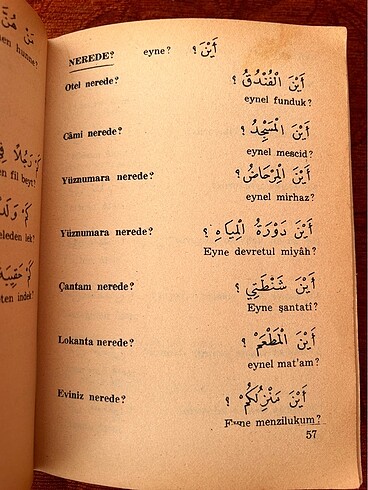 NEREDE? eyne? أَيْنَ ؟
Otel nerede? أَيْنَ الْفُنْدُقُ ؟
eynel funduk?
Câmi nerede? أَيْنَ الْمَسْجِدُ ؟
eynel mescid?
Yüznumara nerede? أَيْنَ الْمِرْحَاضُ ؟
eynel mirhaz?
Yüznumara nerede? أَيْنَ دَوْرَةُ الْمِيَاهِ ؟
Eyne devretul miyâh?
Çantam nerede? أَيْنَ شَنْطَتِي ؟
Eyne şantatî?
Lokanta nerede? أَيْنَ الْمَطْعَمْ ؟
eynel mat'am?
Eviniz nerede? أَيْنَ مَنْزِلُكُمْ ؟
Eyne menzilukum?
57